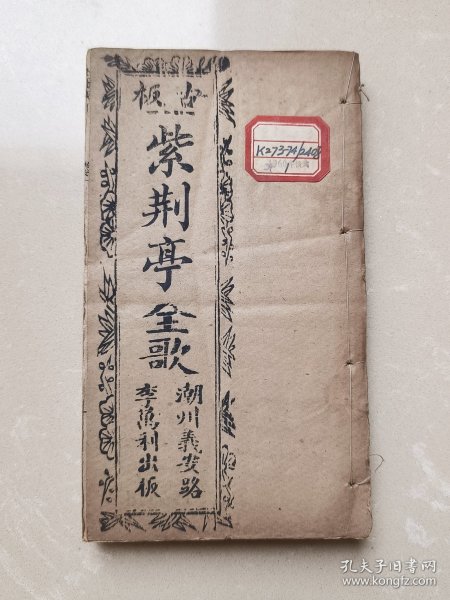 古板
紫荆亭全歌
潮州義安路
李萬利出板
1
孔夫子旧书网
www.kongfz.com